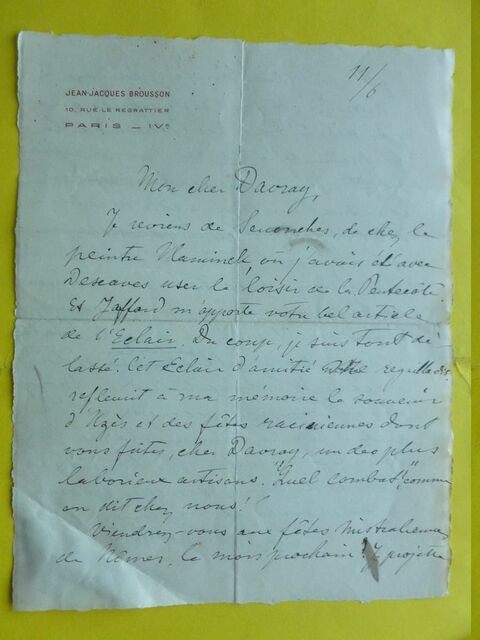 JEAN-JACQUES BROUSSON
10, RUE LE REGRATTIER
PARIS — IVe
11/6
Mon cher Davray,
Je reviens de Senonches, de chez le
peintre Vlaminck où j'avais été avec
Descaves user le loisir de la Pentecôte
Et Jaffard m'apporte votre bel article
de l'Eclair. Du coup, je suis tout dé
lassé. Cet Eclair d'amitié
refleurit à ma mémoire le souvenir
d'Uzès et des fêtes raciniennes dont
vous fûtes, cher Davray, un des plus
laborieux artisans. "Quel combat", comme
on dit chez nous!
Viendrez-vous aux fêtes mistraliennes
de Nîmes, le mois prochain? Je projette